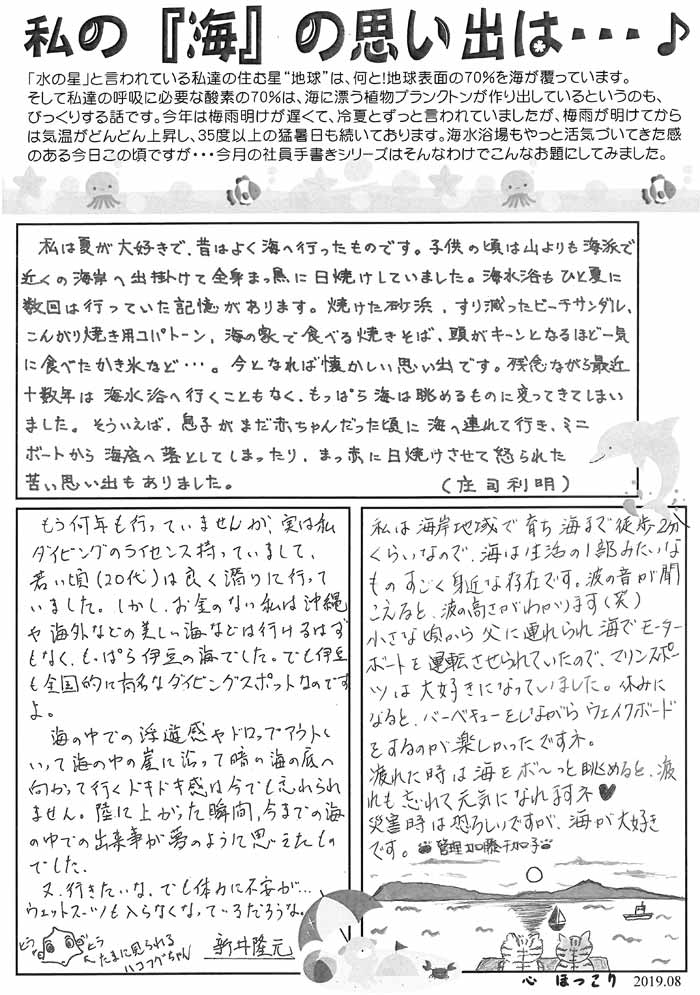 私の『海』の思い出は・・・♪
「水の星」と言われている私達の住む星“地球”は、何と!地球表面の70%を海が覆っています。
そして私達の呼吸に必要な酸素の70%は、海に漂う植物プランクトンが作り出しているというのも、
びっくりする話です。今年は梅雨明けが遅くて、冷夏とずっと言われていましたが、梅雨が明けてから
は気温がどんどん上昇し、35度以上の猛暑日も続いております。海水浴場もやっと活気づいてきた感
のある今日この頃ですが・・・今月の社員手書きシリーズはそんなわけでこんなお題にしてみました。
私は夏が大好きで、昔はよく海へ行ったものです。子供の頃は山よりも海派で
近くの海岸へ出掛けて全身まっ黒に日焼けしていました。海水浴もひと夏に
数回は行っていた記憶があります。焼けた砂浜、すり減ったビーチサンダル、
こんがり焼き用コパトーン、海の家で食べる焼きそば、頭がキーンとなるほど一気
に食べたかき氷など・・・。今となれば懐かしい思い出です。残念ながら最近
十数年は海水浴へ行くこともなく、もっぱら海は眺めるものに変ってきてしまい
ました。そういえば、息子がまだ赤ちゃんだった頃に海へ連れて行き、ミニ
ボートから海底へ落としてしまったり、まっ赤に日焼けさせて怒られた
苦い思い出もありました。(庄司利明)
もう何年も行っていませんが、実は私
ダイビングのライセンス持っていまして、
若い頃(20代)は良く潜りに行って
いました。しかし、お金のない私は沖縄
や海外などの美しい海などは行けるはず
もなく、もっぱら伊豆の海でした。でも伊豆
も全国的に有名なダイビングスポットなのです
よ。
海の中での浮遊感やドロップアウトと
いって海の中の崖に沿って暗の海の底へ
向かって行くドキドキ感は今でも忘れられ
ません。陸に上がった瞬間、今までの海
の中での出来事が夢のように思えたもの
でした。
又、行きたいな、でも体力に不安が…、
ウェットスーツも入らなくなっているだろうな。
どう どう
たまに見られる
ハコフグちゃん
新井隆元
私は海岸地域で育ち海まで徒歩2分
くらいなので、海は生活の1部みたいな
ものすごく身近な存在です。波の音が聞
こえると、波の高さがわかります(笑)
小さな頃から父に連れられ海でモーター
ボートを運転させられていたので、マリンスポー
ツは大好きになっていました。休みに
なると、バーベキューをしながらウェイクボード
をするのが楽しかったですネ。
疲れた時は海をボ〜っと眺めると、疲
れも忘れて元気になれますネ♥
災害時は恐ろしいですが、海が大好き
です。管理 加藤千加子
心 ほっこり 2019.08